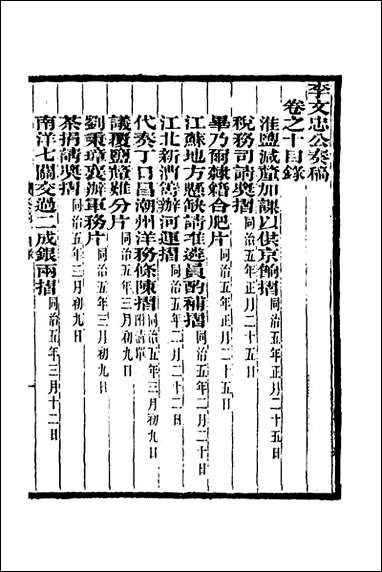 李文忠公奏稿
卷之十目錄
淮鹽減釐加課以供京餉摺同治五年正月二十五日
稅務司請獎摺同治五年正月二十五日
畢乃爾隸籍合肥片同治五年正月二十五日
江蘇地方懸缺請准遴員酌補摺同治五年二月二十日
江北新漕籌辦河運摺同治五年二月二十日
代奏丁日昌潮州洋務條陳摺附清單同治五年三月初九日
議覆鹽釐難分片同治五年三月初九日
劉秉璋襄辦軍務片同治五年三月初九日
茶捐請獎摺同治五年三月初九日
南洋七關交過二成銀兩摺同治五年三月十二日